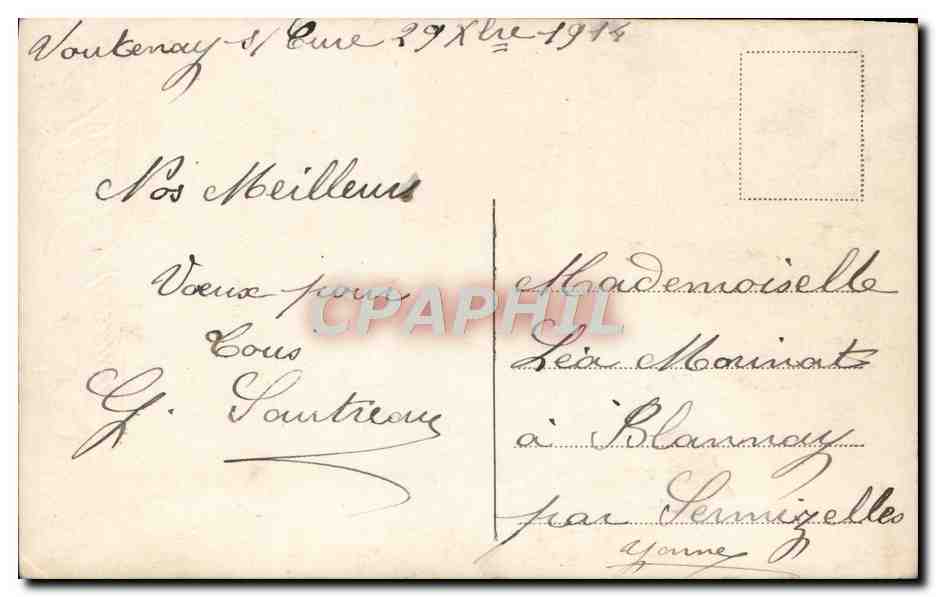 Voutenay s/ Cure 29 Xbre 1914
Nos Meilleurs
Vœux pour
Tous
G. Sautreau
Mademoiselle
Léa
à Blannay
par Sermizelles
Yonne
CPAPHIL